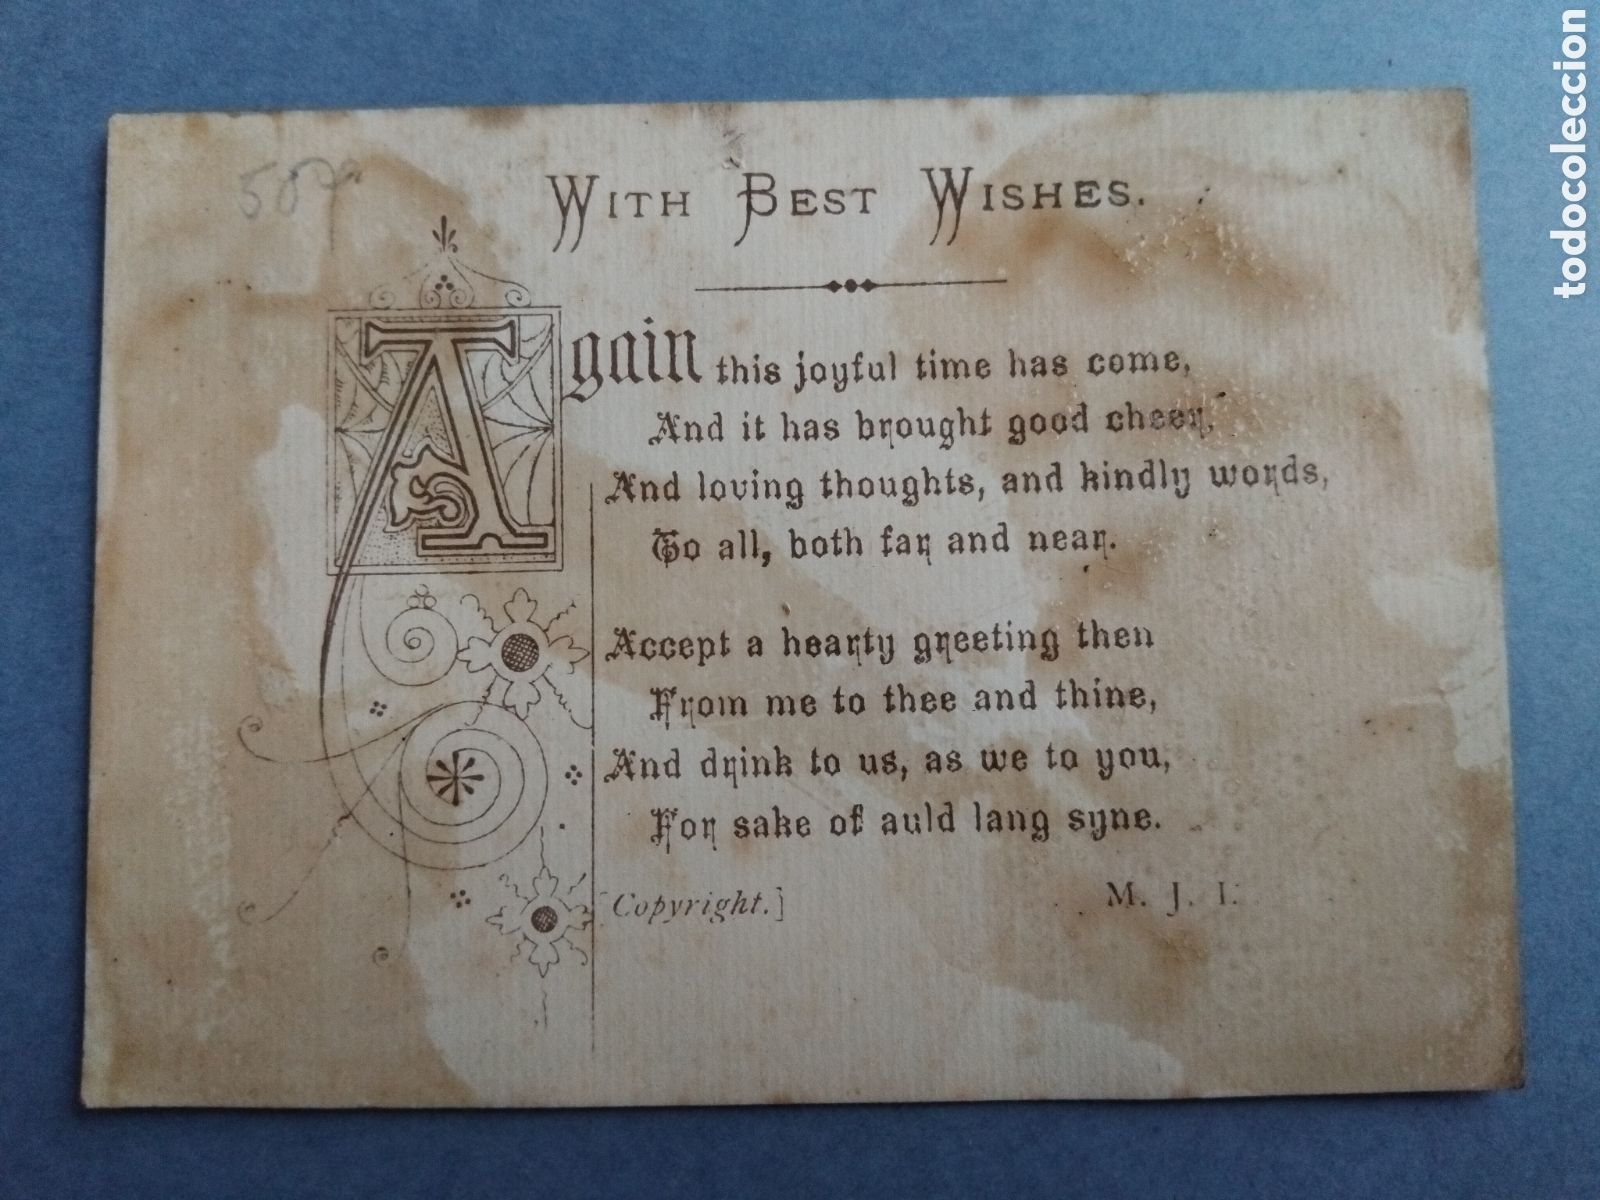 With Best Wishes.
Again this joyful time has come,
And it has brought good cheer,
And loving thoughts, and kindly words,
To all, both far and near.
Accept a hearty greeting then
From me to thee and thine,
And drink to us, as we to you,
For sake of auld lang syne.
[Copyright.]
M. J. I.
todocoleccion